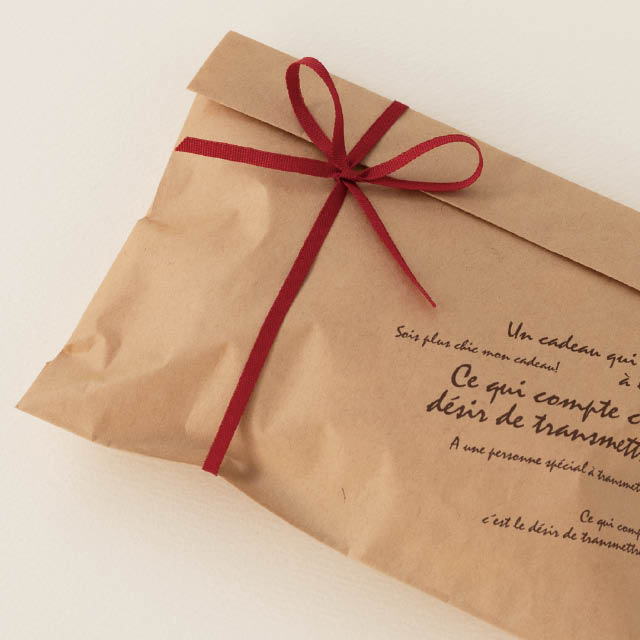 Un cadeau qui
Sois plus chic mon cadeau!
à
Ce qui compte c
désir de transmett
A une personne spécial à transmet
Ce qui comp
c'est le désir de transmettr